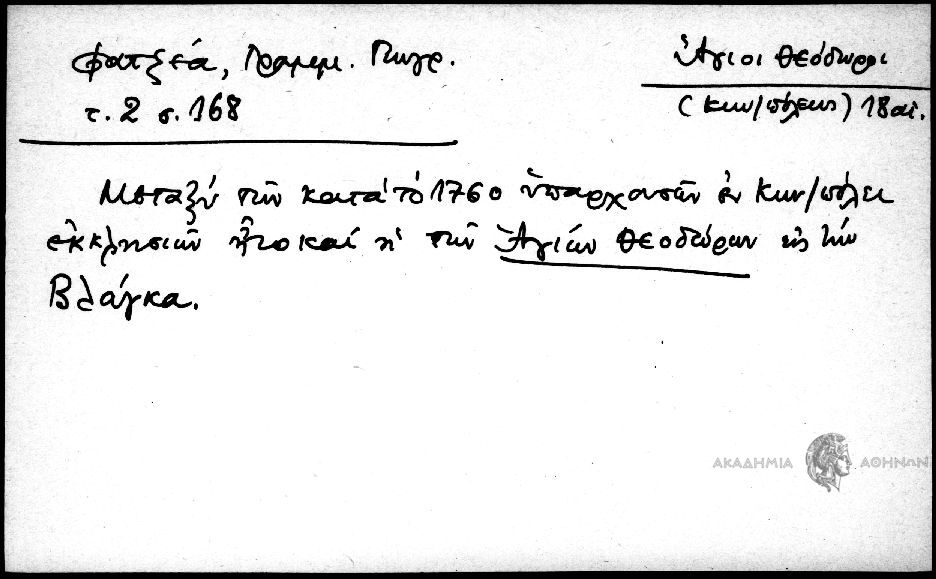 Φατζεά, Γραμμ. Πυγρ.
τ. 2 σ. 168
Ἅγιοι Θεόδωροι
(Κων/πόλεως) 18 αἰ.
Μεταξύ τῶν κατά τό 1760 ὑπαρχουσῶν ἐν Κων/πόλει
ἐκκλησιῶν ἦτο καί ἡ τῶν Ἁγίων Θεοδώρων εἰς τήν
Βλάγκα.
ΑΚΑΔΗΜΙΑ ΑΘΗΝΩΝ